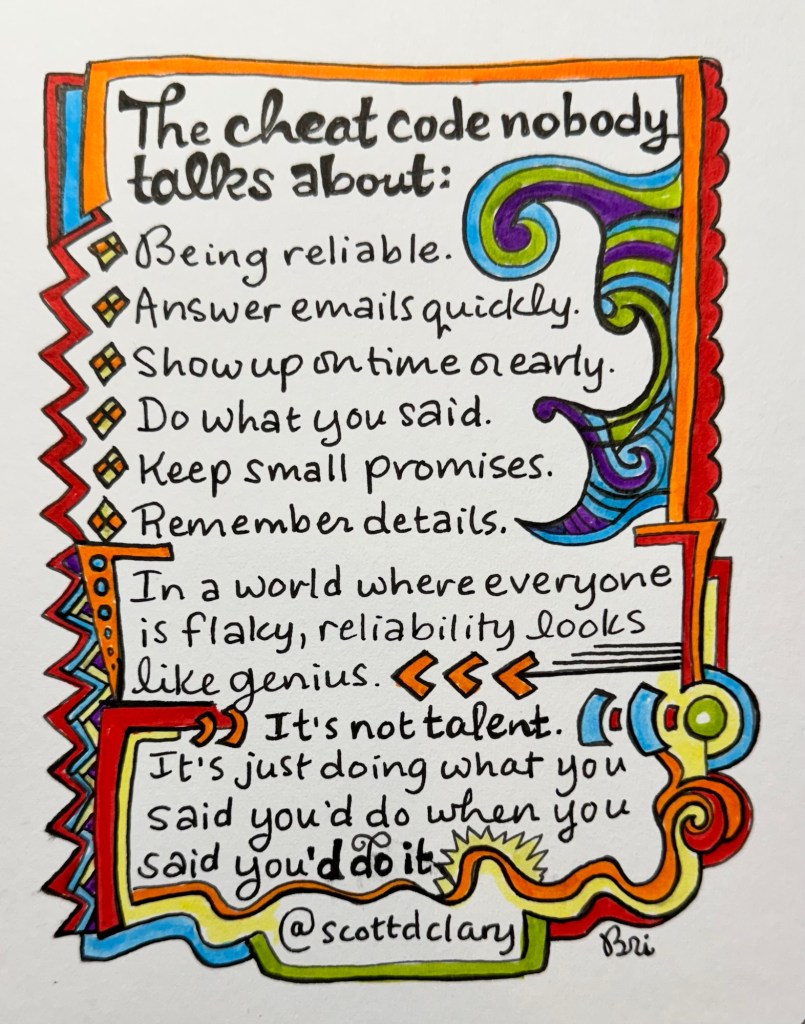 The cheat code nobody
talks about:
Being reliable.
Answer emails quickly.
Show up on time or early.
Do what you said.
Keep small promises.
Remember details.
In a world where everyone
is flaky, reliability looks
like genius.
It's not talent.
It's just doing what you
said you'd do when you
said you'd do it
@scottdclary
Bri